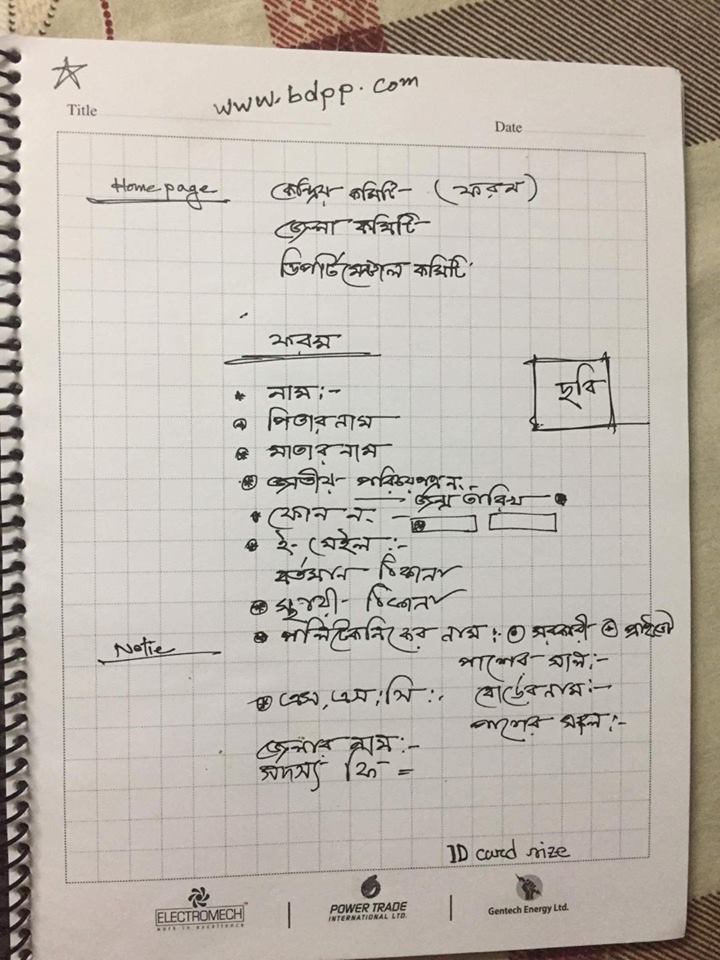 www.bdpp.com
Title
Date
Home page
কেন্দ্রিয় কমিটি (ফরম)
জেলা কমিটি
ডিপার্টমেন্টাল কমিটি
ফরম
ছবি
নাম :-
পিতার নাম
মাতার নাম
জাতীয় পরিচয়পত্র নং
জন্ম তারিখ
ফোন নং -
ই-মেইল :-
বর্তমান ঠিকানা
স্থায়ী ঠিকানা
পলিটেকনিকের নাম :- সরকারী
পাশের সাল :-
Notie
এস, এস, সি :-
বোর্ডের নাম :-
পাশের সাল :-
জেলার নাম :-
সদস্য ফি =
ID card size
ELECTROMECH
work in excellence
POWER TRADE
INTERNATIONAL LTD.
Gentech Energy Ltd.